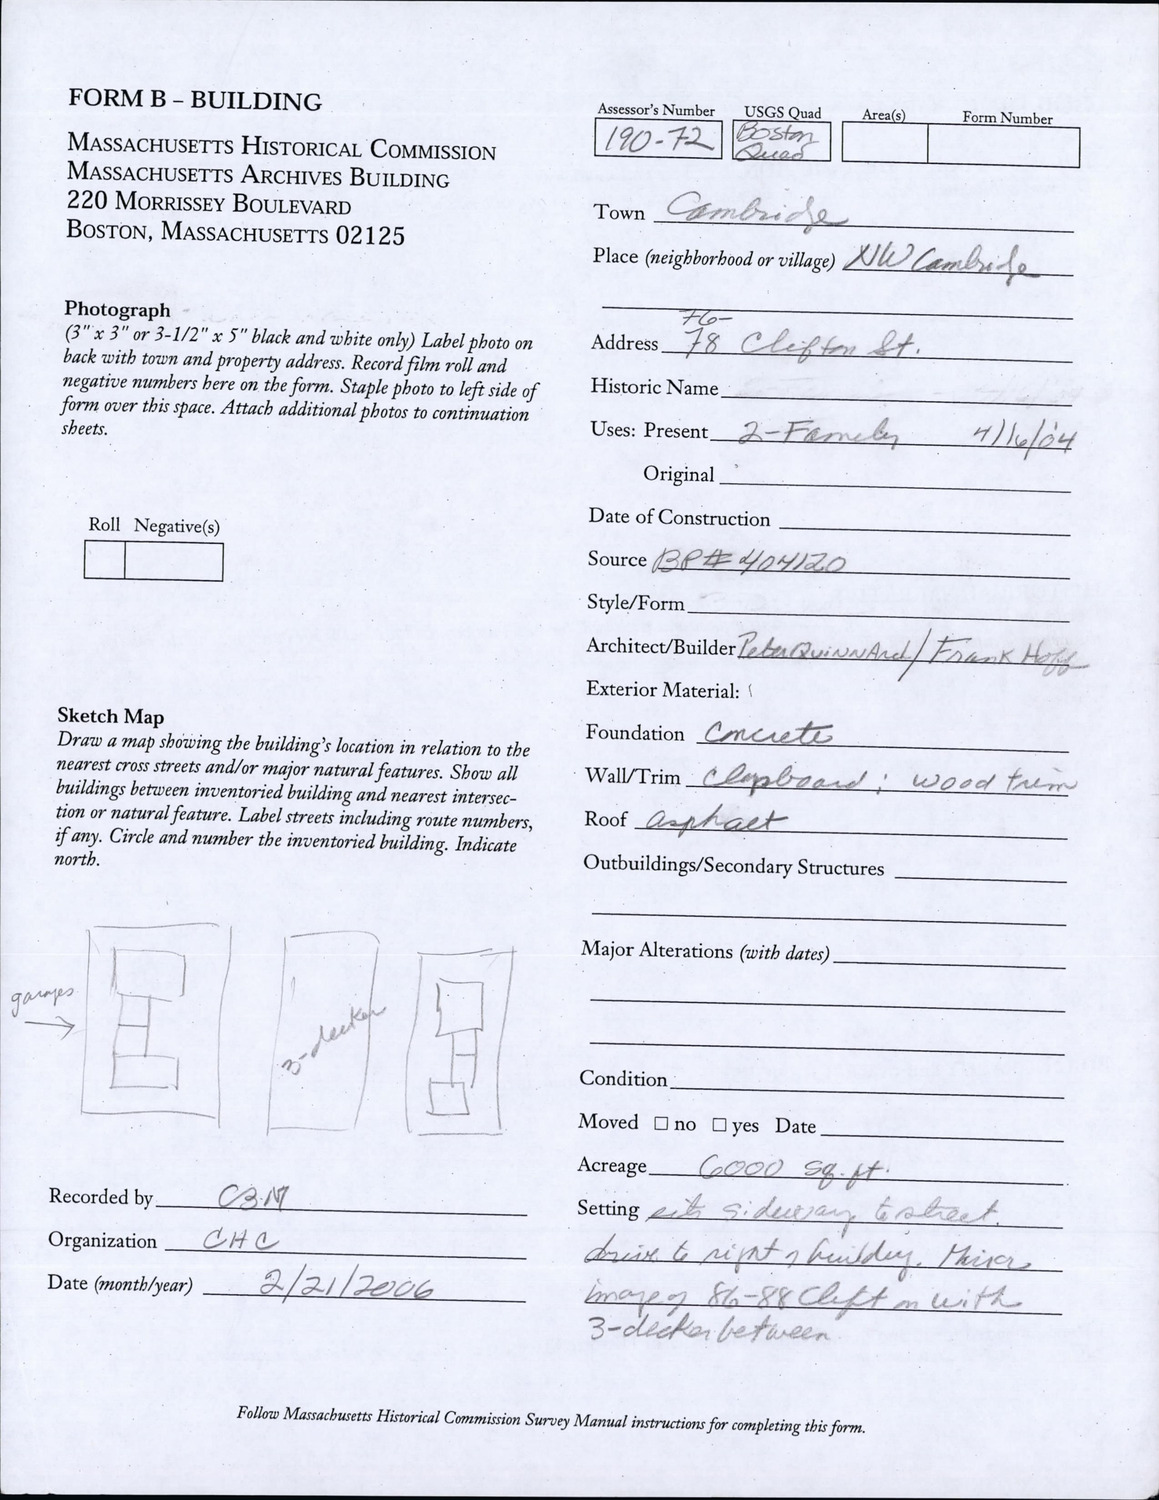 FORM B – BUILDING
MASSACHUSETTS HISTORICAL COMMISSION
MASSACHUSETTS ARCHIVES BUILDING
220 MORRISSEY BOULEVARD
BOSTON, MASSACHUSETTS 02125
Photograph
(3" x 3" or 3-1/2" x 5" black and white only) Label photo on
back with town and property address. Record film roll and
negative numbers here on the form. Staple photo to left side of
form over this space. Attach additional photos to continuation
sheets.
Roll Negative(s)
Sketch Map
Draw a map showing the building's location in relation to the
nearest cross streets and/or major natural features. Show all
buildings between inventoried building and nearest intersec-
tion or natural feature. Label streets including route numbers,
if any. Circle and number the inventoried building. Indicate
north.
garages
3-decker
Recorded by CBM
Organization CHC
Date (month/year) 2/21/2006
Assessor's Number USGS Quad Area(s) Form Number
190-72 Boston
Quad
Town Cambridge
Place (neighborhood or village) NW Cambridge
76-
Address 78 Clifton St.
Historic Name
Uses: Present 2-Family 4/16/04
Original
Date of Construction
Source BP# 404120
Style/Form
Architect/Builder Peter Quinn Arch/Frank Hoff
Exterior Material:
Foundation Concrete
Wall/Trim Clapboard; wood trim
Roof asphalt
Outbuildings/Secondary Structures
Major Alterations (with dates)
Condition
Moved □ no □ yes Date
Acreage 6000 sq. ft.
Setting sits sideway to street.
drive to right of building. Mirror
image of 86-88 Clifton with
3-decker between.
Follow Massachusetts Historical Commission Survey Manual instructions for completing this form.